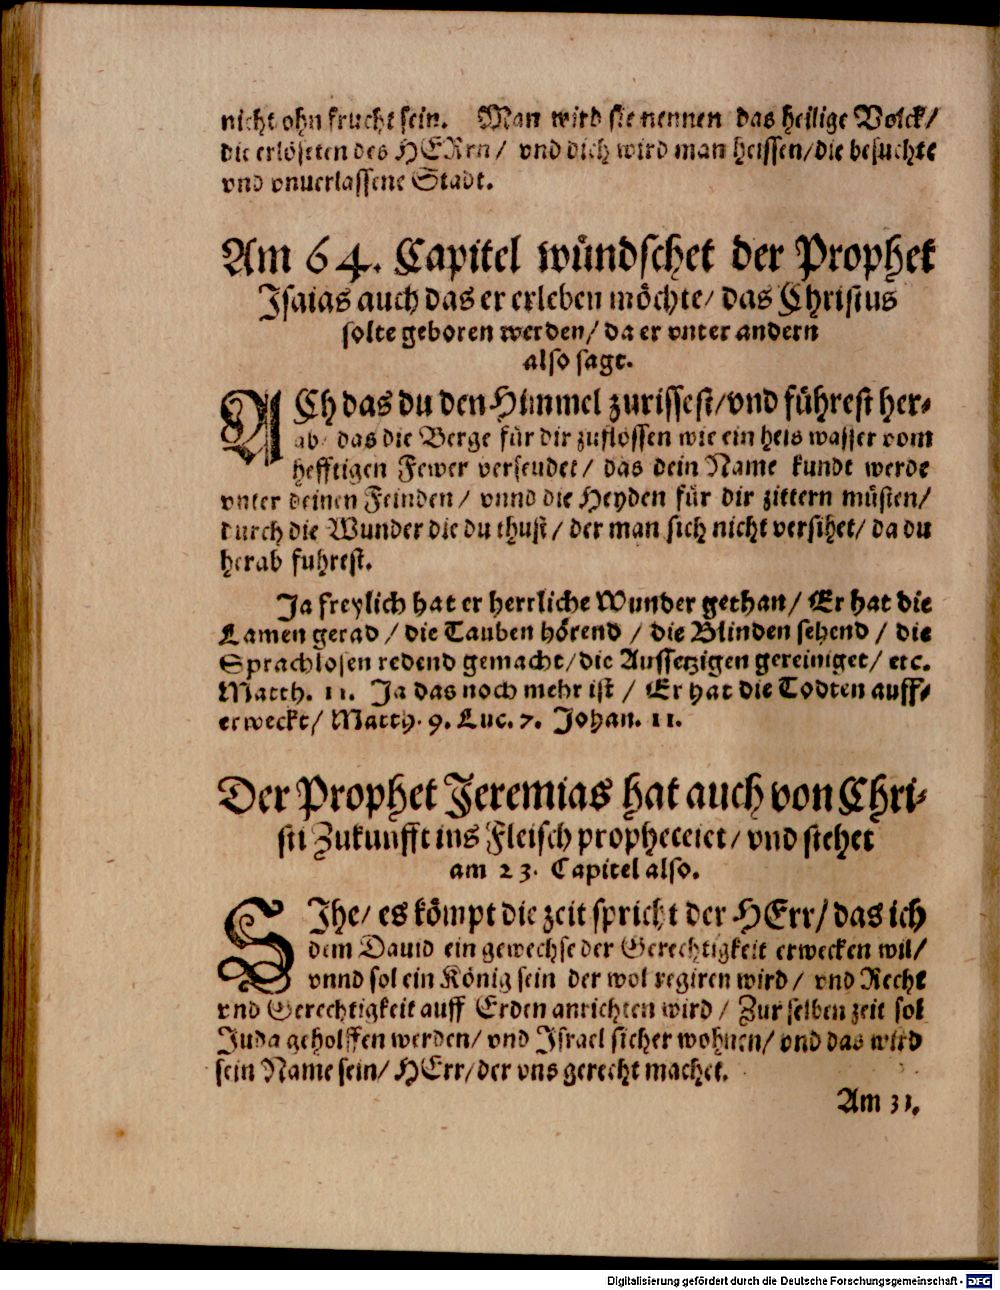 nicht ohn frucht sein. Man wird sie nennen das heilige Volck/
die erlöseten des HERrn/ vnd dich wird man heissen/die besuchte
vnd vnuerlassene Stadt.
Am 64. Capitel wündschet der Prophet
Isaias auch das er erleben möchte/ das Christus
solte geboren werden/ da er vnter andern
also sagt.
ACh das du den Himmel zurissest/vnd führest her-
ab/ das die Berge für dir zuflössen wie ein heis wasser vom
hefftigen Fewer verseudet/ das dein Name kundt werde
vnter deinen Feinden/ vnnd die Heyden für dir zittern müsten/
durch die Wunder die du thust/ der man sich nicht versihet/ da du
herab fuhrest.
Ja freylich hat er herrliche Wunder gethan/ Er hat die
Lamen gerad/ die Tauben hörend/ die Blinden sehend/ die
Sprachlosen redend gemacht/die Aussetzigen gereiniget/ etc.
Matth. 11. Ja das noch mehr ist/ Er hat die Todten auff-
erweckt/ Matth. 9. Luc. 7. Johan. 11.
Der Prophet Jeremias hat auch von Chri-
sti Zukunfft ins Fleisch propheceiet/ vnd stehet
am 23. Capitel also.
SIhe/ es kömpt die zeit spricht der HErr/das ich
dem Dauid ein gewechse der Gerechtigkeit erwecken wil/
vnnd sol ein König sein der wol regiren wird/ vnd Recht
vnd Gerechtigkeit auff Erden anrichten wird/ Zur selben zeit sol
Juda geholffen werden/ vnd Israel sicher wohnen/ vnd das wird
sein Name sein/ HErr/der vns gerecht machet.
Am 31.
Digitalisierung gefördert durch die Deutsche Forschungsgemeinschaft - DFG